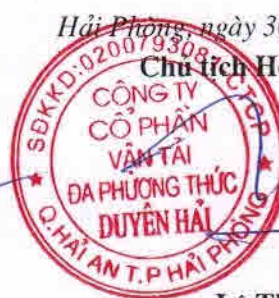 Hải Phòng, ngày 3
Chủ tịch H
SĐKKD:0200793081-C.T.C.P
CÔNG TY
CỔ PHẦN
VẬN TẢI
ĐA PHƯƠNG THỨC
DUYÊN HẢI
Q.HẢI AN T.P HẢI PHÒNG